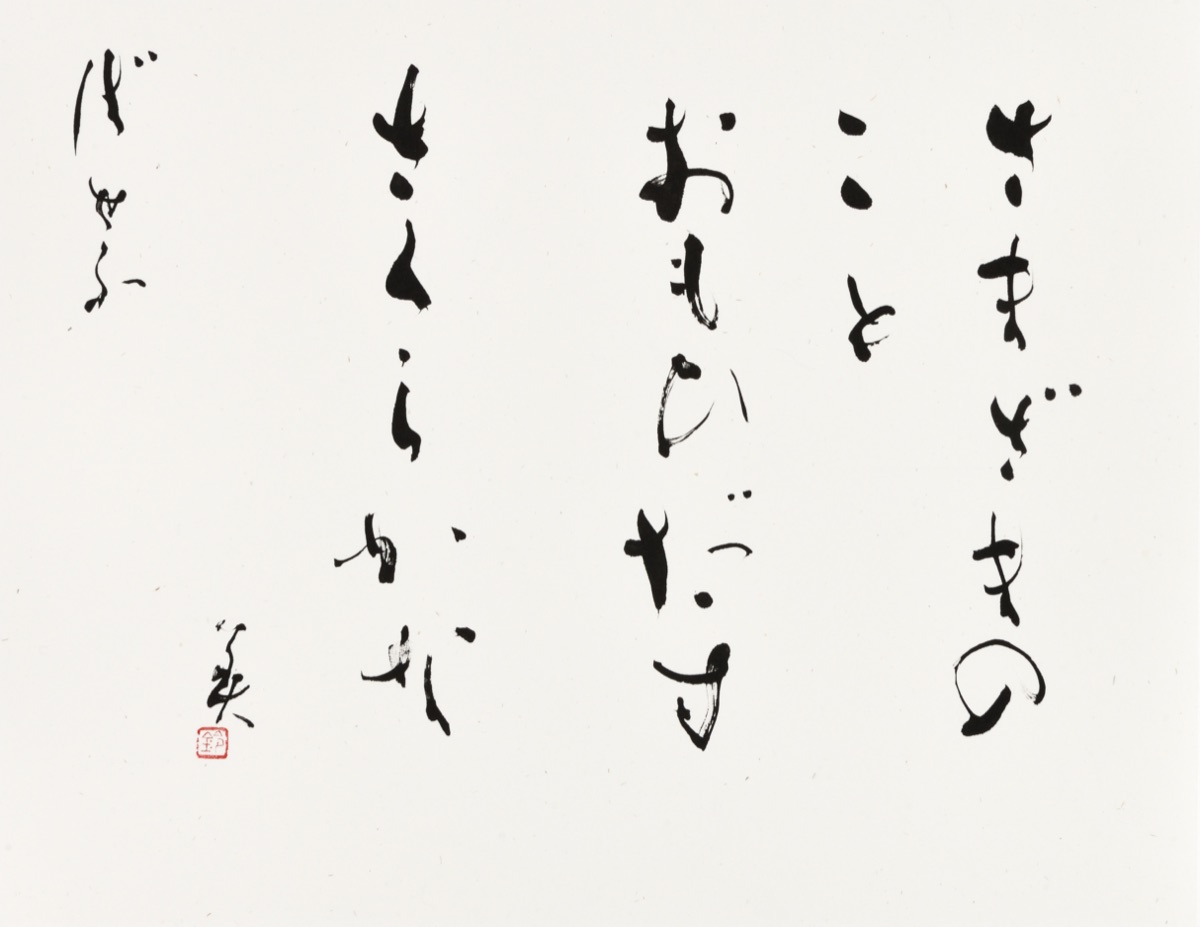 さまざまの
こと
おもひだす
さくらかな
ばせふ
美
鈴